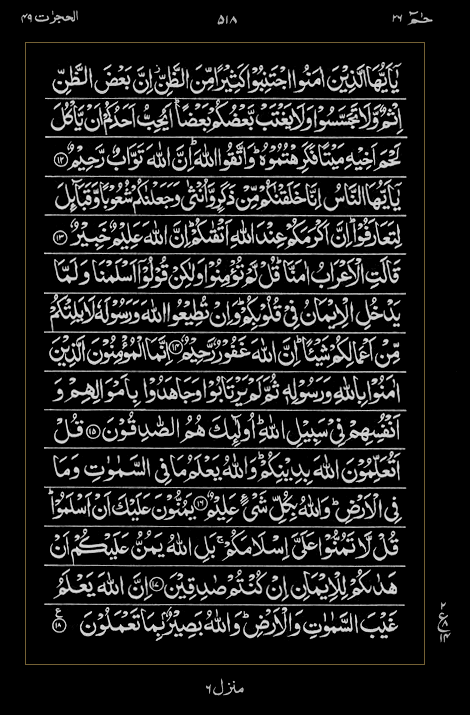 الحجرات ٤٩ ٥١٨ حٰمٓ ٢٦
يٰۤاَيُّهَا الَّذِيْنَ اٰمَنُوا اجْتَنِبُوْا كَثِيْرًا مِّنَ الظَّنِّ ؗ اِنَّ بَعْضَ الظَّنِّ
اِثْمٌ وَّلَا تَجَسَّسُوْا وَلَا يَغْتَبْ بَّعْضُكُمْ بَعْضًا ؕ اَيُحِبُّ اَحَدُكُمْ اَنْ يَّاْكُلَ
لَحْمَ اَخِيْهِ مَيْتًا فَكَرِهْتُمُوْهُ ؕ وَاتَّقُوا اللّٰهَ ؕ اِنَّ اللّٰهَ تَوَّابٌ رَّحِيْمٌ ﴿١٢﴾
يٰۤاَيُّهَا النَّاسُ اِنَّا خَلَقْنٰكُمْ مِّنْ ذَكَرٍ وَّاُنْثٰى وَجَعَلْنٰكُمْ شُعُوْبًا وَّقَبَآئِلَ
لِتَعَارَفُوْا ؕ اِنَّ اَكْرَمَكُمْ عِنْدَ اللّٰهِ اَتْقٰىكُمْ ؕ اِنَّ اللّٰهَ عَلِيْمٌ خَبِيْرٌ ﴿١٣﴾
قَالَتِ الْاَعْرَابُ اٰمَنَّا ؕ قُلْ لَّمْ تُؤْمِنُوْا وَلٰكِنْ قُوْلُوْۤا اَسْلَمْنَا وَلَمَّا
يَدْخُلِ الْاِيْمَانُ فِيْ قُلُوْبِكُمْ ؕ وَاِنْ تُطِيْعُوا اللّٰهَ وَرَسُوْلَهٗ لَا يَلِتْكُمْ
مِّنْ اَعْمَالِكُمْ شَيْـًٔا ؕ اِنَّ اللّٰهَ غَفُوْرٌ رَّحِيْمٌ ﴿١٤﴾ اِنَّمَا الْمُؤْمِنُوْنَ الَّذِيْنَ
اٰمَنُوْا بِاللّٰهِ وَرَسُوْلِهٖ ثُمَّ لَمْ يَرْتَابُوْا وَجَاهَدُوْا بِاَمْوَالِهِمْ وَ
اَنْفُسِهِمْ فِيْ سَبِيْلِ اللّٰهِ ؕ اُولٰٓئِكَ هُمُ الصّٰدِقُوْنَ ﴿١٥﴾ قُلْ
اَتُعَلِّمُوْنَ اللّٰهَ بِدِيْنِكُمْ ؕ وَاللّٰهُ يَعْلَمُ مَا فِي السَّمٰوٰتِ وَمَا
فِي الْاَرْضِ ؕ وَاللّٰهُ بِكُلِّ شَيْءٍ عَلِيْمٌ ﴿١٦﴾ يَمُنُّوْنَ عَلَيْكَ اَنْ اَسْلَمُوْا ؕ
قُلْ لَّا تَمُنُّوْا عَلَيَّ اِسْلَامَكُمْ ۚ بَلِ اللّٰهُ يَمُنُّ عَلَيْكُمْ اَنْ
هَدٰىكُمْ لِلْاِيْمَانِ اِنْ كُنْتُمْ صٰدِقِيْنَ ﴿١٧﴾ اِنَّ اللّٰهَ يَعْلَمُ
غَيْبَ السَّمٰوٰتِ وَالْاَرْضِ ؕ وَاللّٰهُ بَصِيْرٌۢ بِمَا تَعْمَلُوْنَ ﴿١٨﴾ ع
٢
ع ٨
١٤
منزل ٦